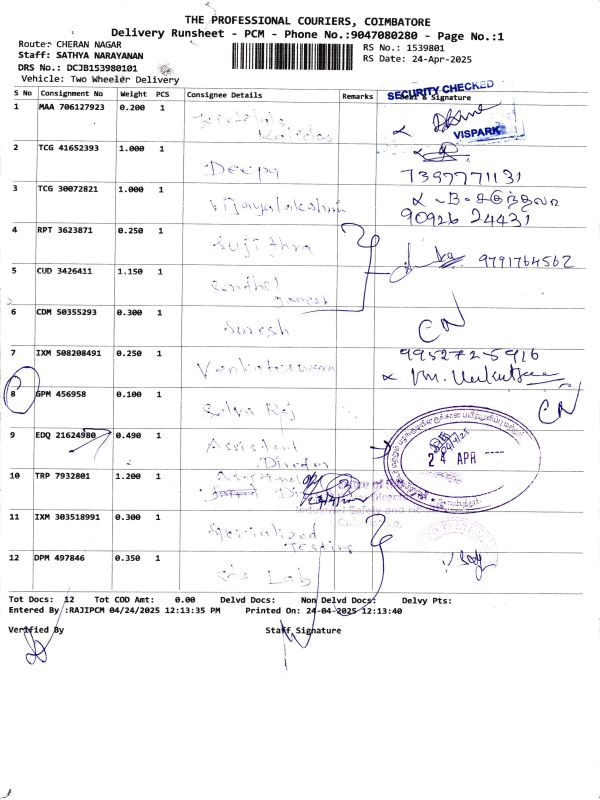 THE PROFESSIONAL COURIERS, COIMBATORE
Delivery Runsheet - PCM - Phone No.:9047080280 - Page No.:1
Route: CHERAN NAGAR
RS No.: 1539801
Staff: SATHYA NARAYANAN
RS Date: 24-Apr-2025
DRS No.: DCJB153980101
Vehicle: Two Wheeler Delivery
S No Consignment No Weight PCS Consignee Details Remarks Seal & Signature
SECURITY CHECKED
VISPARK
1 MAA 706127923 0.200 1
2 TCG 41652393 1.000 1 Deepa
7397771131
3 TCG 30072821 1.000 1 Vijayalakshmi
90926 24431
4 RPT 3623871 0.250 1 Sujithra
9791764562
5 CUD 3426411 1.150 1 Senthel
ganesh
6 CDM 50355293 0.300 1 Suresh
CN
7 IXM 508208491 0.250 1 Venkateswaran
9952725916
8 GPM 456958 0.100 1 Selva Raj
CN
9 EDQ 21624980 0.490 1 Assistant
Director
24 APR
10 TRP 7932801 1.200 1
11 IXM 303518991 0.300 1 Specialized
Testing
12 DPM 497846 0.350 1 Lab
Tot Docs: 12 Tot COD Amt: 0.00 Delvd Docs: Non Delvd Docs: Delvy Pts:
Entered By :RAJIPCM 04/24/2025 12:13:35 PM Printed On: 24-04-2025 12:13:40
Verified By Staff Signature